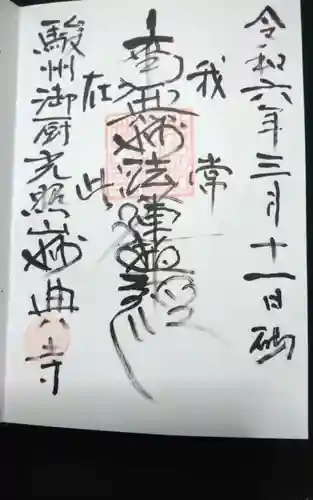 令和六年三月十一日
我常
南無妙法蓮華経
在此
駿州御厨光照山妙典寺